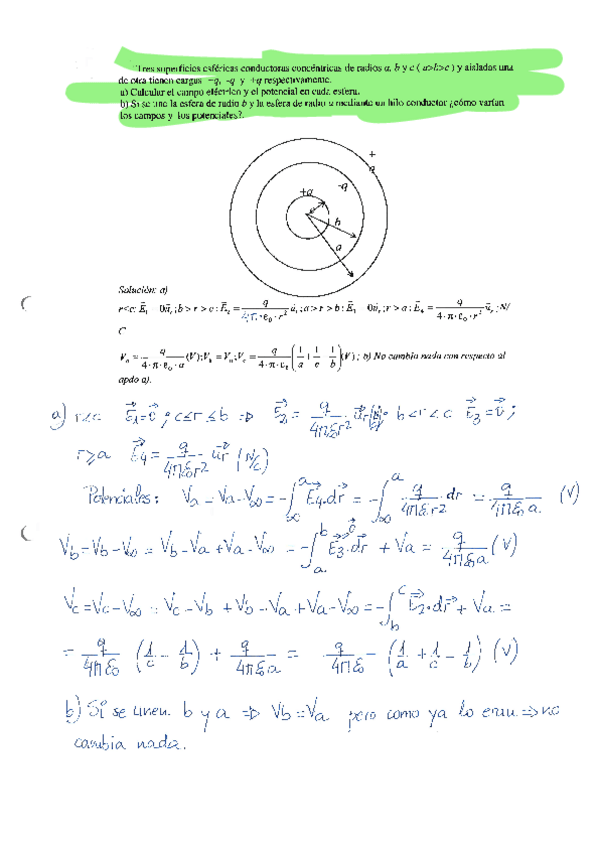 Tres superficies esféricas conductoras concéntricas de radios a, b y c ( a>b>c ) y aisladas una
de otra tienen cargas +q, -q y +q respectivamente.
a) Calcular el campo eléctrico y el potencial en cada esfera.
b) Si se une la esfera de radio b y la esfera de radio a mediante un hilo conductor ¿cómo varían
los campos y los potenciales?.
+
q
-q
+q
b
a
Solución: a)
r<c: E₁ = 0u_r ; b > r > c : E₂ = q / (4·π·ε₀·r²) u_r ; a > r > b : E₃ = 0u_r ; r > a : E₄ = q / (4·π·ε₀·r²) u_r ; N/
C
V_a = q / (4·π·ε₀·a) (V); V_b = V_a; V_c = q / (4·π·ε₀) (1/a + 1/c - 1/b) (V) ; b) No cambia nada con respecto al
apdo a).
a) r<c E₁=0 ; c≤r≤b ⇒ E₂ = q / 4πε₀r² u_r b<r<c E₃=0 ;
r≥a E₄ = q / 4πε₀r² u_r (N/C)
Potenciales: Va = Va-V∞ = -∫_∞^a E₄·dr = -∫_∞^a q / 4πε₀r² · dr = q / 4πε₀a (V)
Vb=Vb-V∞ = Vb-Va+Va-V∞ = -∫_a^b E₃·dr + Va = q / 4πε₀a (V)
0
Vc=Vc-V∞ = Vc-Vb + Vb-Va+Va-V∞ = -∫_b^c E₂·dr + Va =
= q / 4πε₀ (1/c - 1/b) + q / 4πε₀a = q / 4πε₀ (1/a + 1/c - 1/b) (V)
b) Si se unen b y a ⇒ Vb=Va pero como ya lo eran ⇒ no
cambia nada.